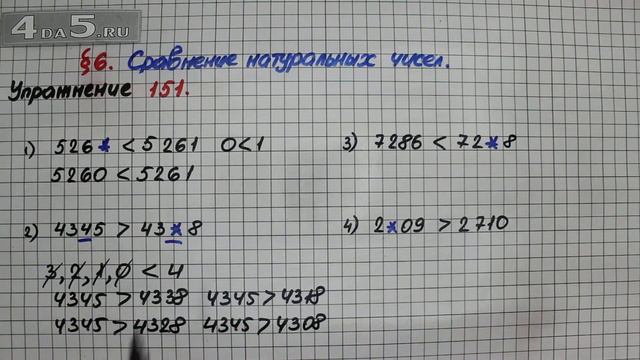 4DA5.RU
§6. Сравнение натуральных чисел.
Упражнение 151.
1) 526* < 5261 0<1
5260 < 5261
2) 4345 > 43*8
3, 2, 1, 0 < 4
4345 > 4338 4345 > 4318
4345 > 4328 4345 > 4308
3) 7286 < 72*8
4) 2*09 > 2710